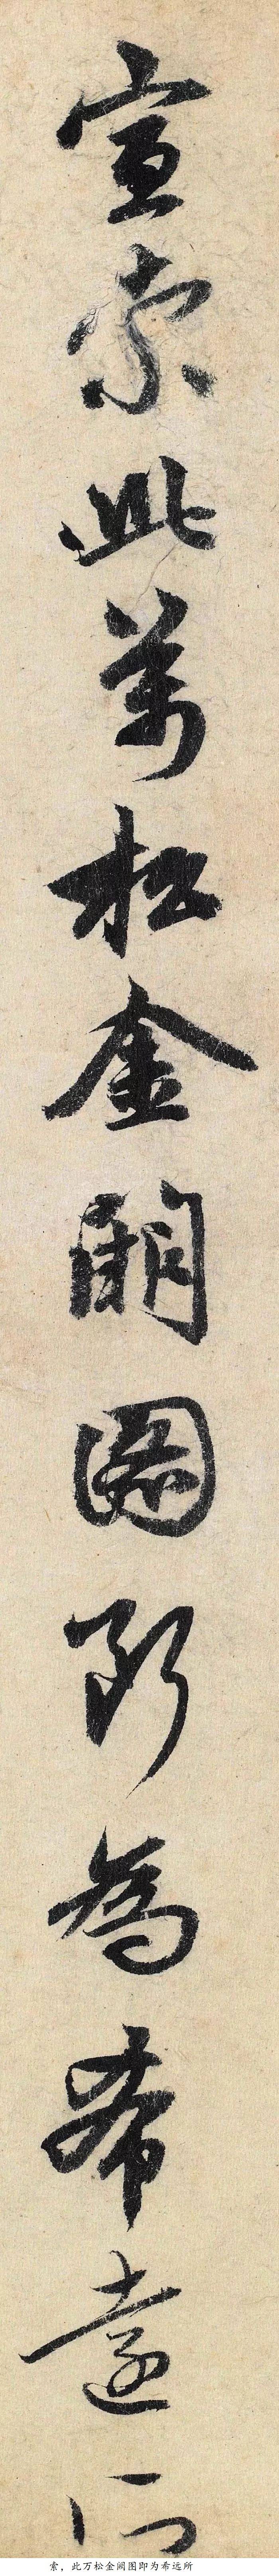 宣索此萬松金闕圖即為希遠所
索，此万松金阙图即为希远所